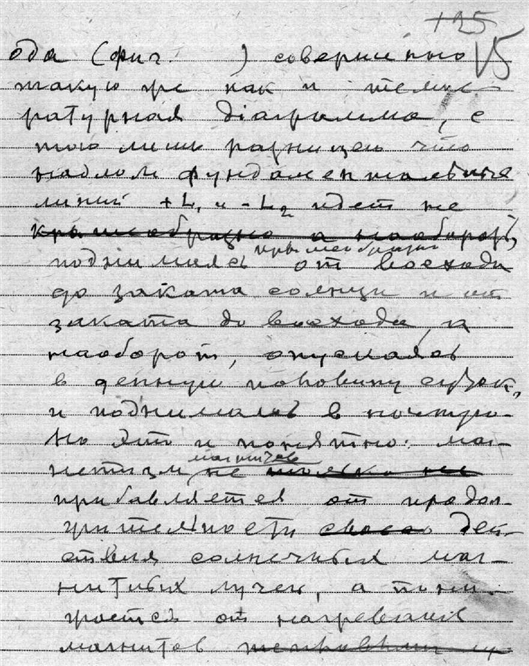 +25
15
ода (фиг. ) совершенно
такую же как и темпе-
ратурная діаграмма, с
тою лишь разницею что
наклон фундаментальных
линий +L₁ и -L₂ идет не
крышеобразно а наоборот,
прямообразно
поднимаясь от восхода
до заката солнца и от
заката до восхода, а
наоборот, опускаясь
в денную половину суток,
и поднимаясь в ночную.
Но это и понятно: маг-
нетизм не только не
прибавляется от продол-
жительности своего дей-
ствия солнечных маг-
нитных лучей, а пони-
жается от нагревания
магнитов